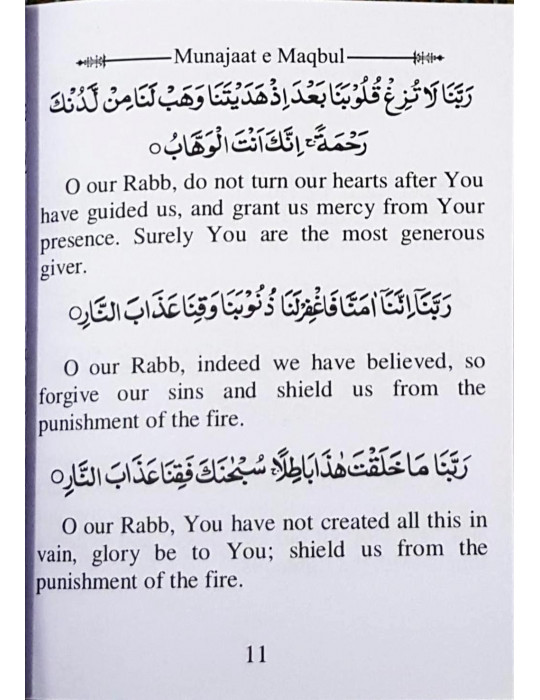 Munajaat e Maqbul
رَبَّنَا لَا تُزِغْ قُلُوْبَنَا بَعْدَ اِذْ هَدَيْتَنَا وَهَبْ لَنَا مِنْ لَّدُنْكَ
رَحْمَةً ۚ اِنَّكَ اَنْتَ الْوَهَّابُ ○
O our Rabb, do not turn our hearts after You
have guided us, and grant us mercy from Your
presence. Surely You are the most generous
giver.
رَبَّنَآ اِنَّنَآ اٰمَنَّا فَاغْفِرْلَنَا ذُنُوْبَنَا وَقِنَا عَذَابَ النَّارِ ○
O our Rabb, indeed we have believed, so
forgive our sins and shield us from the
punishment of the fire.
رَبَّنَا مَا خَلَقْتَ هٰذَا بَاطِلًا ۚ سُبْحٰنَكَ فَقِنَا عَذَابَ النَّارِ ○
O our Rabb, You have not created all this in
vain, glory be to You; shield us from the
punishment of the fire.
11